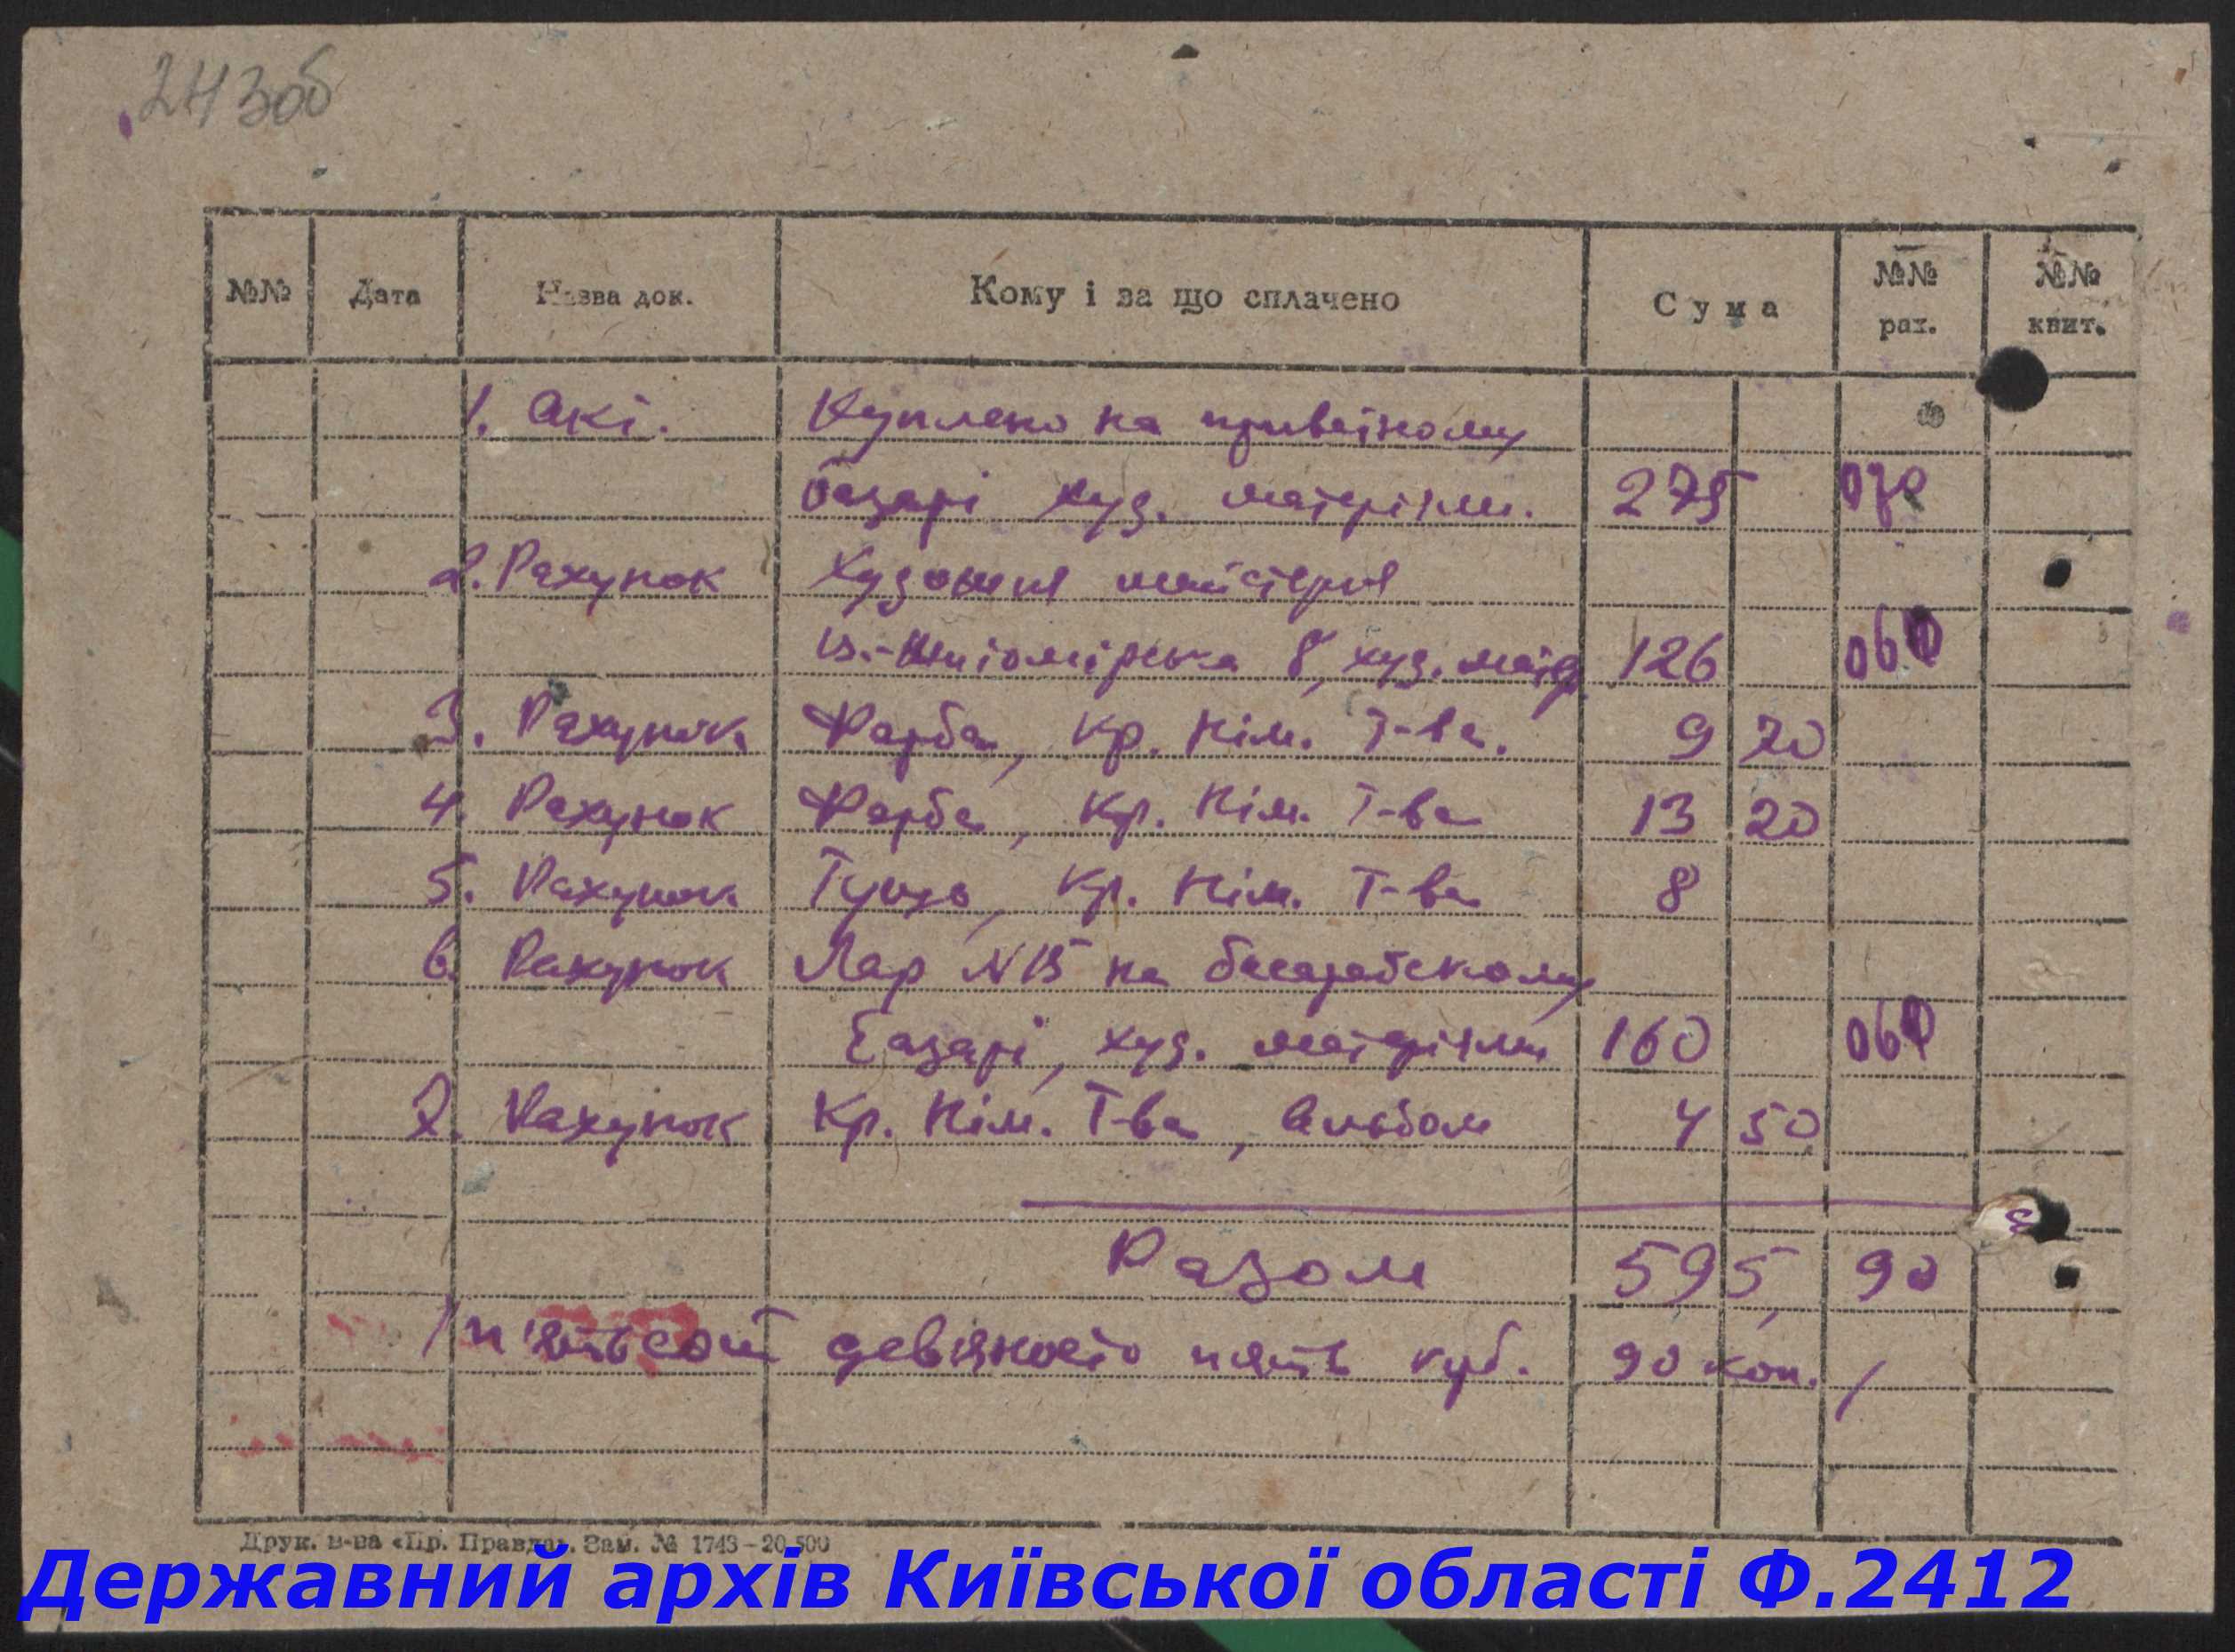 243об
№№ Дата Назва док. Кому і за що сплачено Сума №№ рах. №№ квит.
1. Акт. Куплено на приватному
базарі худ. матеріяли. 275
2. Рахунок Художня майстерня
в.-Житомірська 8, худ. матер 126
3. Рахунок Фарба, Кр. Нім. Т-ва. 9 20
4. Рахунок Фарба, Кр. Нім. Т-ва 13 20
5. Рахунок Туш, Кр. Нім. Т-ва 8
6. Рахунок Лар №15 на бесарабскому
базарі, худ. матеріяли 160
7. Рахунок Кр. Нім. Т-ва, альбом 4 50
Разом 595, 90
/п'ятьсот девяносто пять крб. 90 коп./
Друк. в-ва «Пр. Правда». Зам. № 1743–20,500
Державний архів Київської області Ф.2412